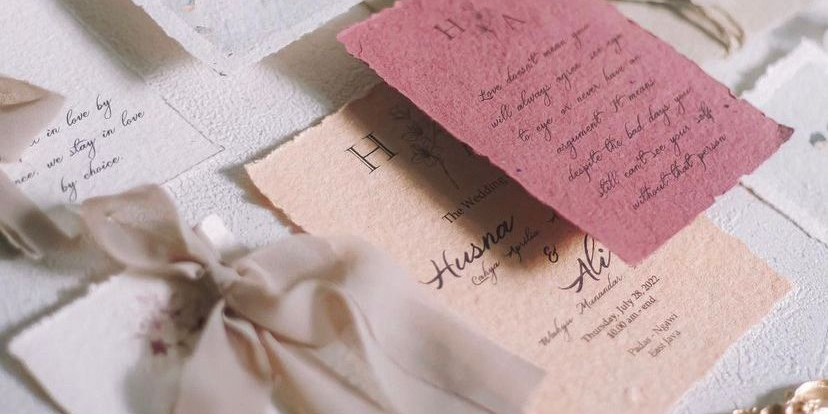 in love by
we stay in love
by choice.
H A
Love doesn't mean you
will always agree see eye
to eye or never have an
argument. It means
despite the bad days you
still can't see your self
without that person
H
The Wedding
Husna
Cahya Aprilia
&
Ali
Wahyu Munandar
Thursday, July 28, 2022
10.00 am - end
Padas - Ngawi
East Java